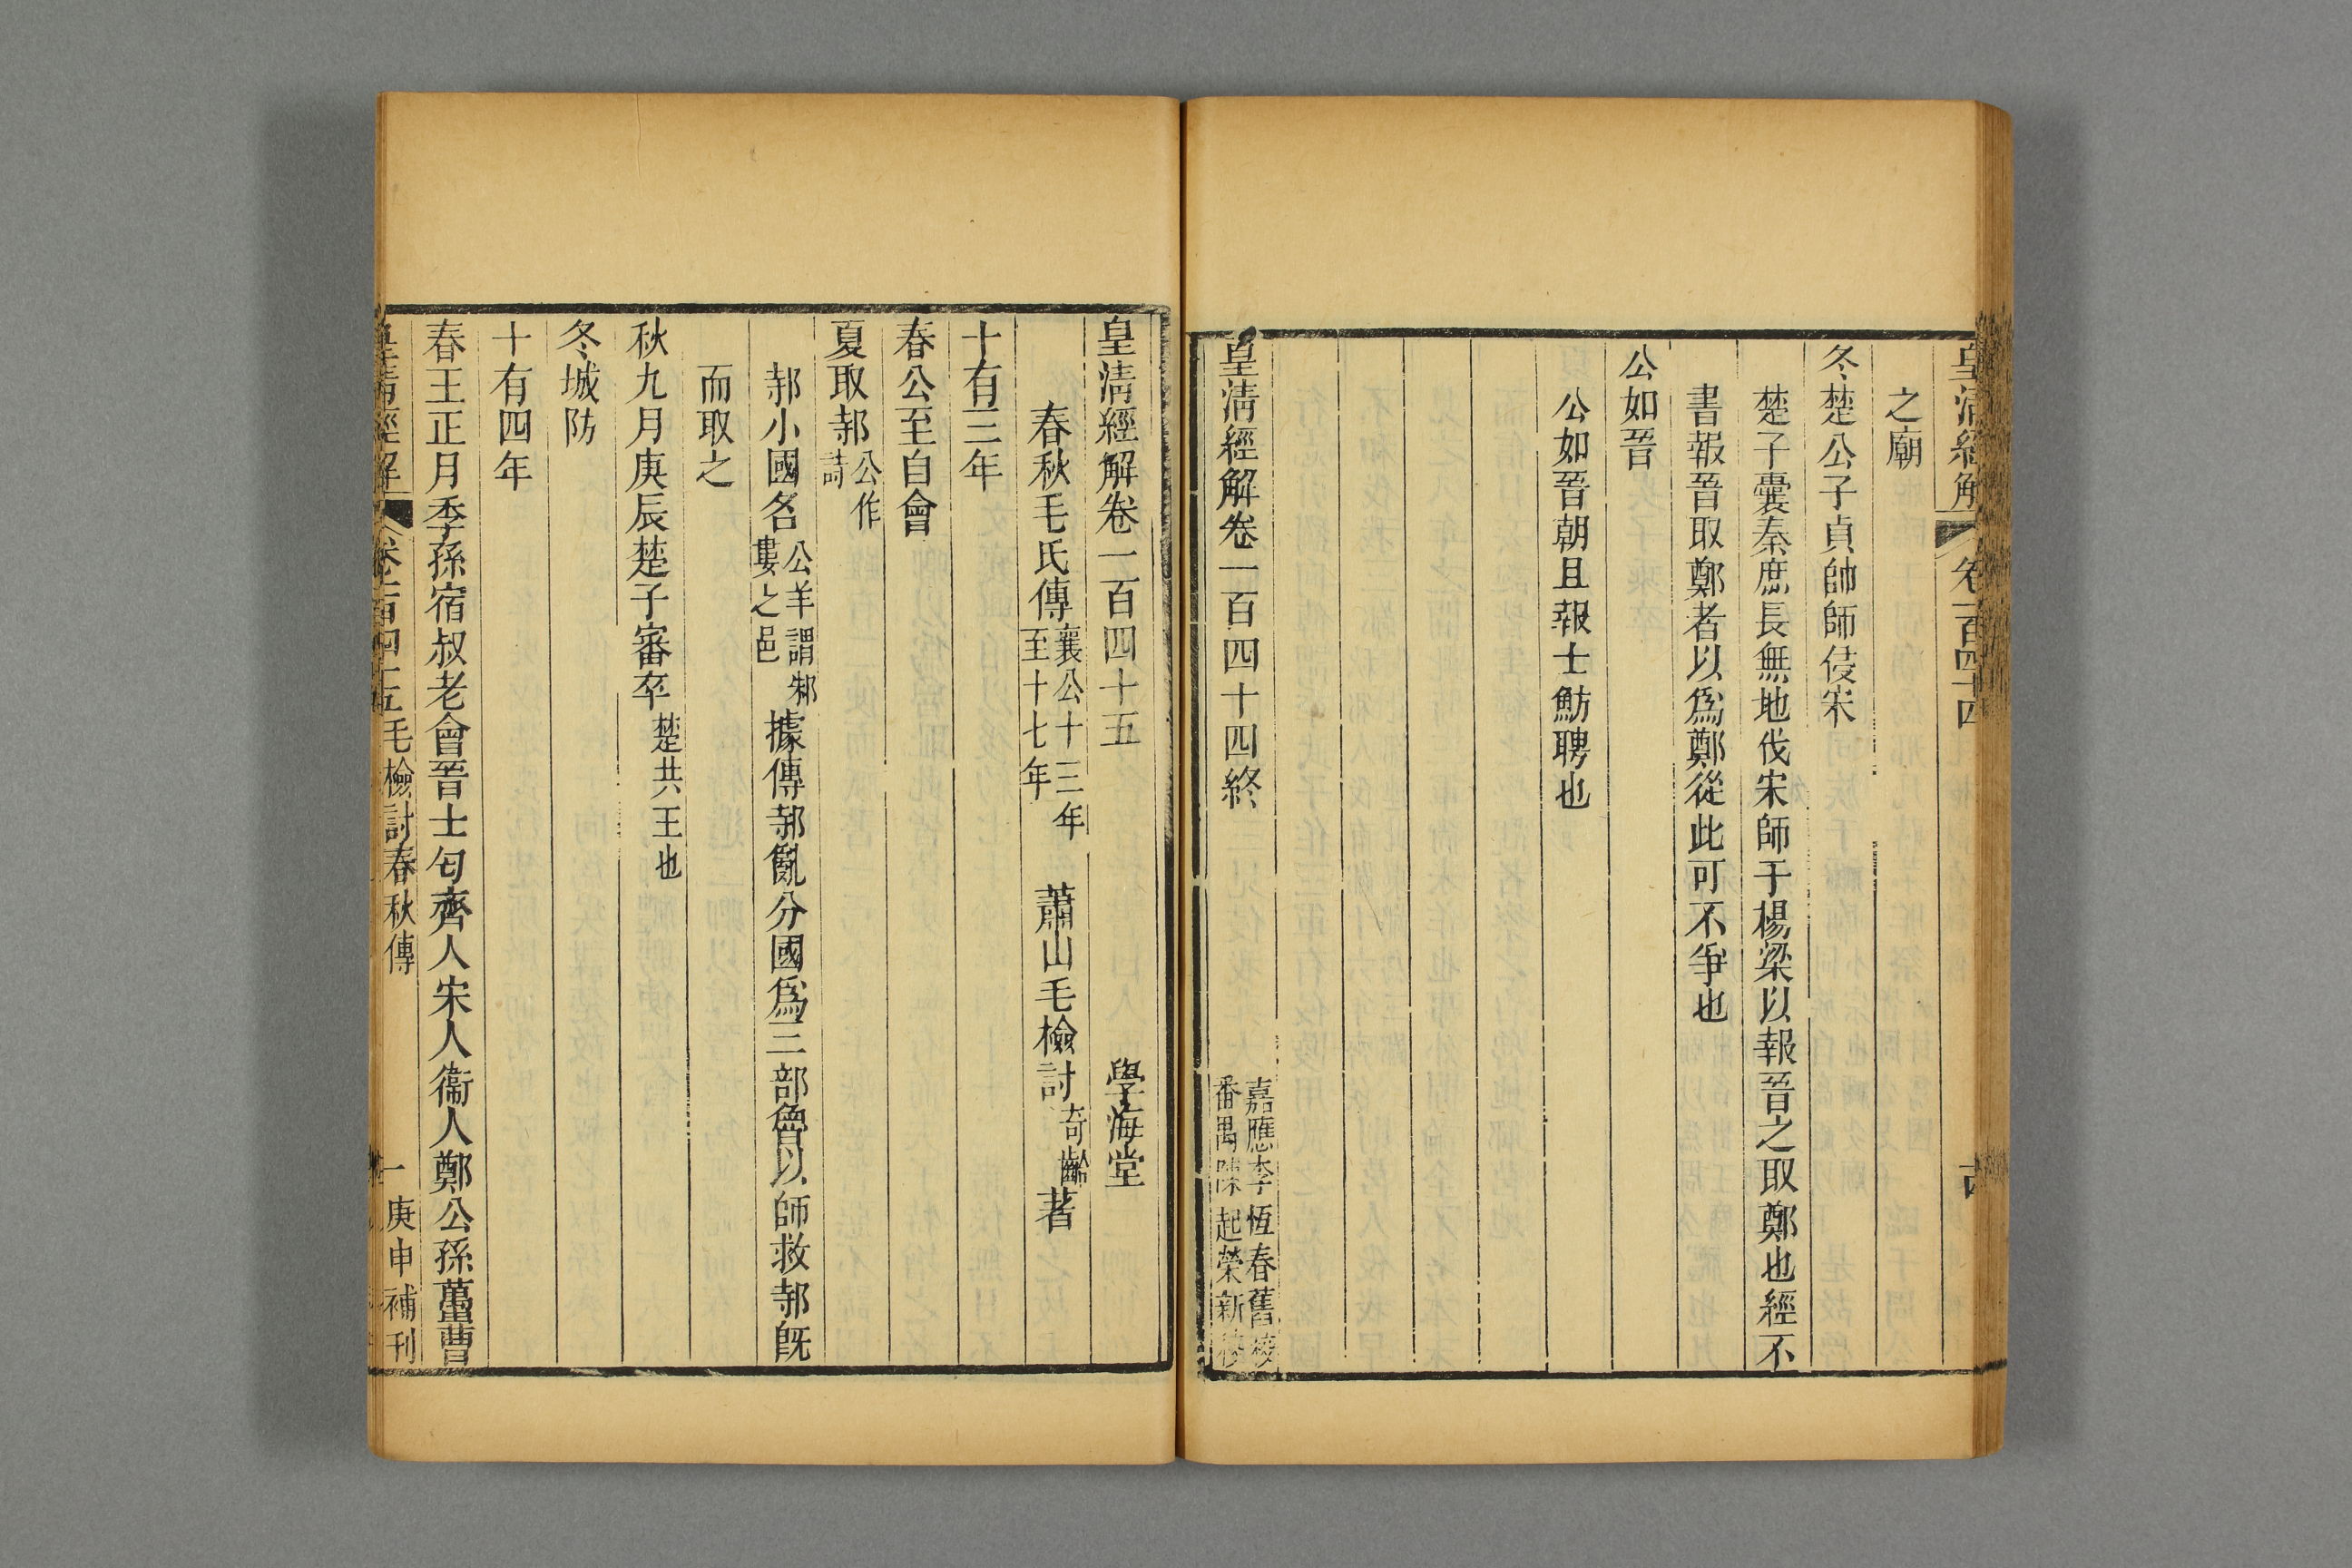 皇清經解 卷一百四十四
之廟
冬楚公子貞帥師侵宋
楚子囊秦庶長無地伐宋師于楊梁以報晉之取鄭也經不
書報晉取鄭者以爲鄭從此可不爭也
公如晉
公如晉朝且報士魴聘也
皇清經解卷一百四十四終
嘉應李恆春舊校
番禺陳起榮新校
皇清經解卷一百四十五 學海堂
春秋毛氏傳襄公十三年至十七年 蕭山毛檢討奇齡著
十有三年
春公至自會
夏取邿公作詩
邿小國名公羊謂邾婁之邑據傳邿亂分國爲三部魯以師救邿旣
而取之
秋九月庚辰楚子審卒楚共王也
冬城防
十有四年
春王正月季孫宿叔老會晉士匄齊人宋人衞人鄭公孫蠆曹
皇清經解 卷一百四十五 毛檢討春秋傳 一 庚申補刊